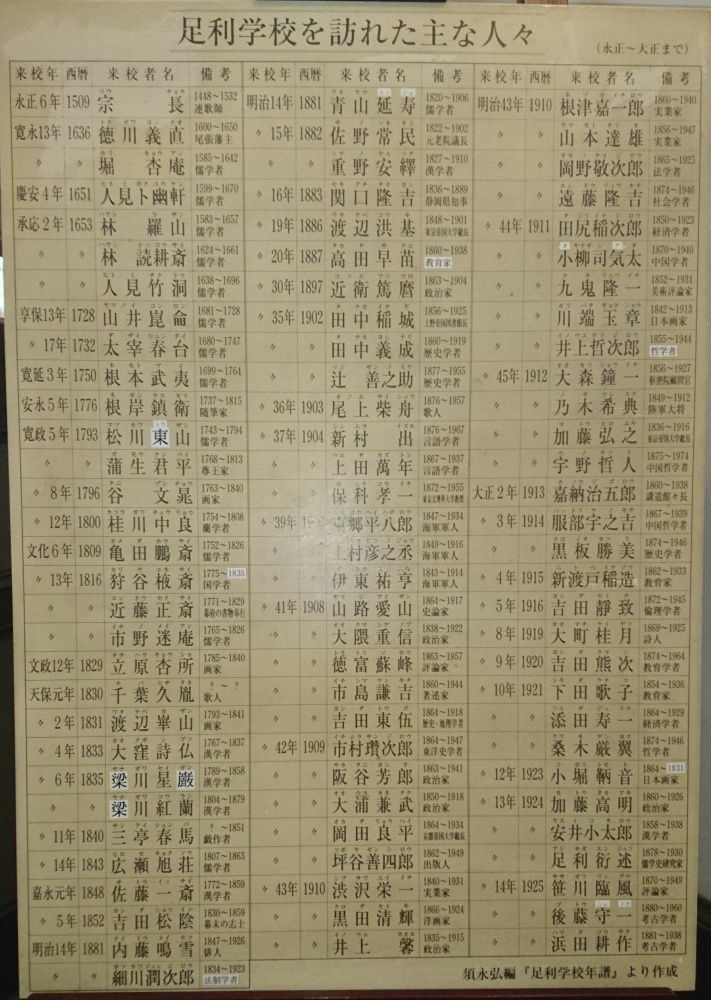 足利学校を訪れた主な人々
(永正~大正まで)
来校年 西暦 来校者名 備考
永正6年 1509 宗長 1448~1532 連歌師
寛永13年 1636 徳川義直 1600~1650 尾張藩主
〃 〃 堀杏庵 1585~1642 儒学者
慶安4年 1651 人見卜幽軒 1599~1670 儒学者
承応2年 1653 林羅山 1583~1657 儒学者
〃 〃 林読耕斎 1624~1661 儒学者
〃 〃 人見竹洞 1638~1696 儒学者
享保13年 1728 山井崑崙 1681~1728 儒学者
〃17年 1732 太宰春台 1680~1747 儒学者
寛延3年 1750 根本武夷 1699~1764 儒学者
安永5年 1776 根岸鎮衛 1737~1815 随筆家
寛政5年 1793 松川東山 1743~1794 儒学者
〃 〃 蒲生君平 1768~1813 尊王家
〃8年 1796 谷文晁 1763~1840 画家
〃12年 1800 桂川中良 1754~1808 蘭学者
文化6年 1809 亀田鵬斎 1752~1826 儒学者
〃13年 1816 狩谷棭斎 1775~1835 国学者
〃 〃 近藤正斎 1771~1829 幕府の書物奉行
〃 〃 市野迷庵 1765~1826 儒学者
文政12年 1829 立原杏所 1785~1840 画家
天保元年 1830 千葉久胤 ?~? 歌人
〃2年 1831 渡辺崋山 1793~1841 画家
〃4年 1833 大窪詩仏 1767~1837 漢学者
〃6年 1835 梁川星巌 1789~1858 漢学者
〃 〃 梁川紅蘭 1804~1879 漢学者
〃11年 1840 三亭春馬 ?~1851 戯作者
〃14年 1843 広瀬旭荘 1807~1863 儒学者
嘉永元年 1848 佐藤一斎 1772~1859 漢学者
〃5年 1852 吉田松陰 1830~1859 幕末の志士
明治14年 1881 内藤鳴雪 1847~1926 俳人
〃 〃 細川潤次郎 1834~1923 法制学者
来校年 西暦 来校者名 備考
明治14年 1881 青山延寿 1820~1906 儒学者
〃15年 1882 佐野常民 1822~1902 元老院議長
〃 〃 重野安繹 1827~1910 漢学者
〃16年 1883 関口隆吉 1836~1889 静岡県知事
〃19年 1886 渡辺洪基 1848~1901 東京帝国大学総長
〃20年 1887 高田早苗 1860~1938 教育家
〃30年 1897 近衛篤麿 1863~1904 政治家
〃35年 1902 田中稲城 1856~1925 上野帝国図書館長
〃 〃 田中義成 1860~1919 歴史学者
〃 〃 辻善之助 1877~1955 歴史学者
〃36年 1903 尾上柴舟 1876~1957 歌人
〃37年 1904 新村出 1876~1967 言語学者
〃 〃 上田万年 1867~1937 言語学者
〃 〃 保科孝一 1872~1955 東京文理科大学教授
〃39年 東郷平八郎 1847~1934 海軍軍人
〃 上村彦之丞 1849~1916 海軍軍人
〃 〃 伊東祐亨 1843~1914 海軍軍人
〃41年 1908 山路愛山 1864~1917 史論家
〃 〃 大隈重信 1838~1922 政治家
〃 〃 徳富蘇峰 1863~1957 評論家
〃 〃 市島謙吉 1860~1944 著述家
〃 〃 吉田東伍 1864~1918 歴史・地理学者
〃42年 1909 市村瓚次郎 1864~1947 東洋史学者
〃 〃 阪谷芳郎 1863~1941 政治家
〃 〃 大浦兼武 1850~1918 政治家
〃 〃 岡田良平 1864~1934 京都帝国大学総長
〃 〃 坪谷善四郎 1862~1949 出版人
〃43年 1910 渋沢栄一 1840~1931 実業家
〃 〃 黒田清輝 1866~1924 洋画家
〃 〃 井上馨 1835~1915 政治家
来校年 西暦 来校者名 備考
明治43年 1910 根津嘉一郎 1860~1940 実業家
〃 〃 山本達雄 1856~1947 実業家
〃 〃 岡野敬次郎 1865~1925 法学者
〃 〃 遠藤隆吉 1874~1946 社会学者
〃44年 1911 田尻稲次郎 1850~1923 経済学者
〃 〃 小柳司気太 1870~1940 中国学者
〃 〃 九鬼隆一 1852~1931 美術評論家
〃 〃 川端玉章 1842~1913 日本画家
〃 〃 井上哲次郎 1855~1944 哲学者
〃45年 1912 大森鐘一 1856~1927 枢密院顧問官
〃 〃 乃木希典 1849~1912 陸軍大将
〃 〃 加藤弘之 1836~1916 東京帝国大学総長
〃 〃 宇野哲人 1875~1974 中国哲学者
大正2年 1913 嘉納治五郎 1860~1938 講道館々長
〃3年 1914 服部宇之吉 1867~1939 中国哲学者
〃 〃 黒板勝美 1874~1946 歴史学者
〃4年 1915 新渡戸稲造 1862~1933 教育家
〃5年 1916 吉田靜致 1872~1945 倫理学者
〃8年 1919 大町桂月 1869~1925 詩人
〃9年 1920 吉田熊次 1874~1964 教育学者
〃10年 1921 下田歌子 1854~1936 教育家
〃 〃 添田寿一 1864~1929 経済学者
〃 〃 桑木厳翼 1874~1946 哲学者
〃12年 1923 小堀鞆音 1864~1931 日本画家
〃13年 1924 加藤高明 1860~1926 政治家
〃 〃 安井小太郎 1858~1938 漢学者
〃 〃 足利衍述 1878~1930 儒学史研究家
〃14年 1925 笹川臨風 1870~1949 評論家
〃 〃 後藤守一 1880~1960 考古学者
〃 〃 浜田耕作 1881~1938 考古学者
須永弘編『足利学校年譜』より作成